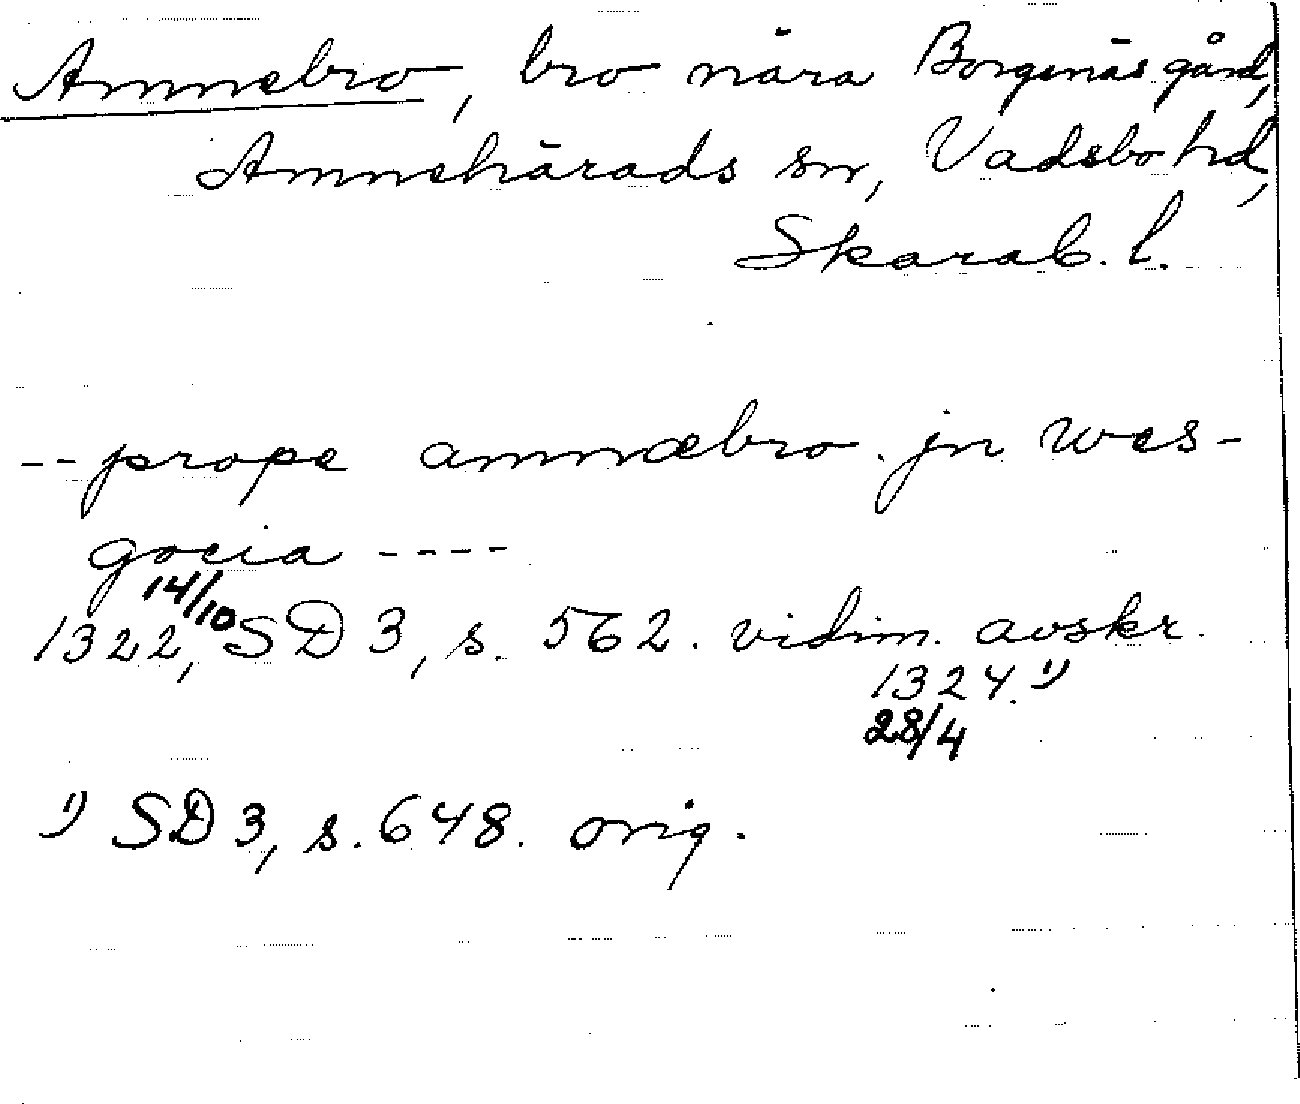 Amnebro, bro nära Borgenäs gård,
Amnehärads sn, Vadsbo hd,
Skarab. l.
-- prope amnæbro. jn wes-
gocia ----
1322 14/10, SD 3, s. 562. vidim. avskr.
1324.¹⁾
28/4
¹⁾ SD 3, s. 648. orig.